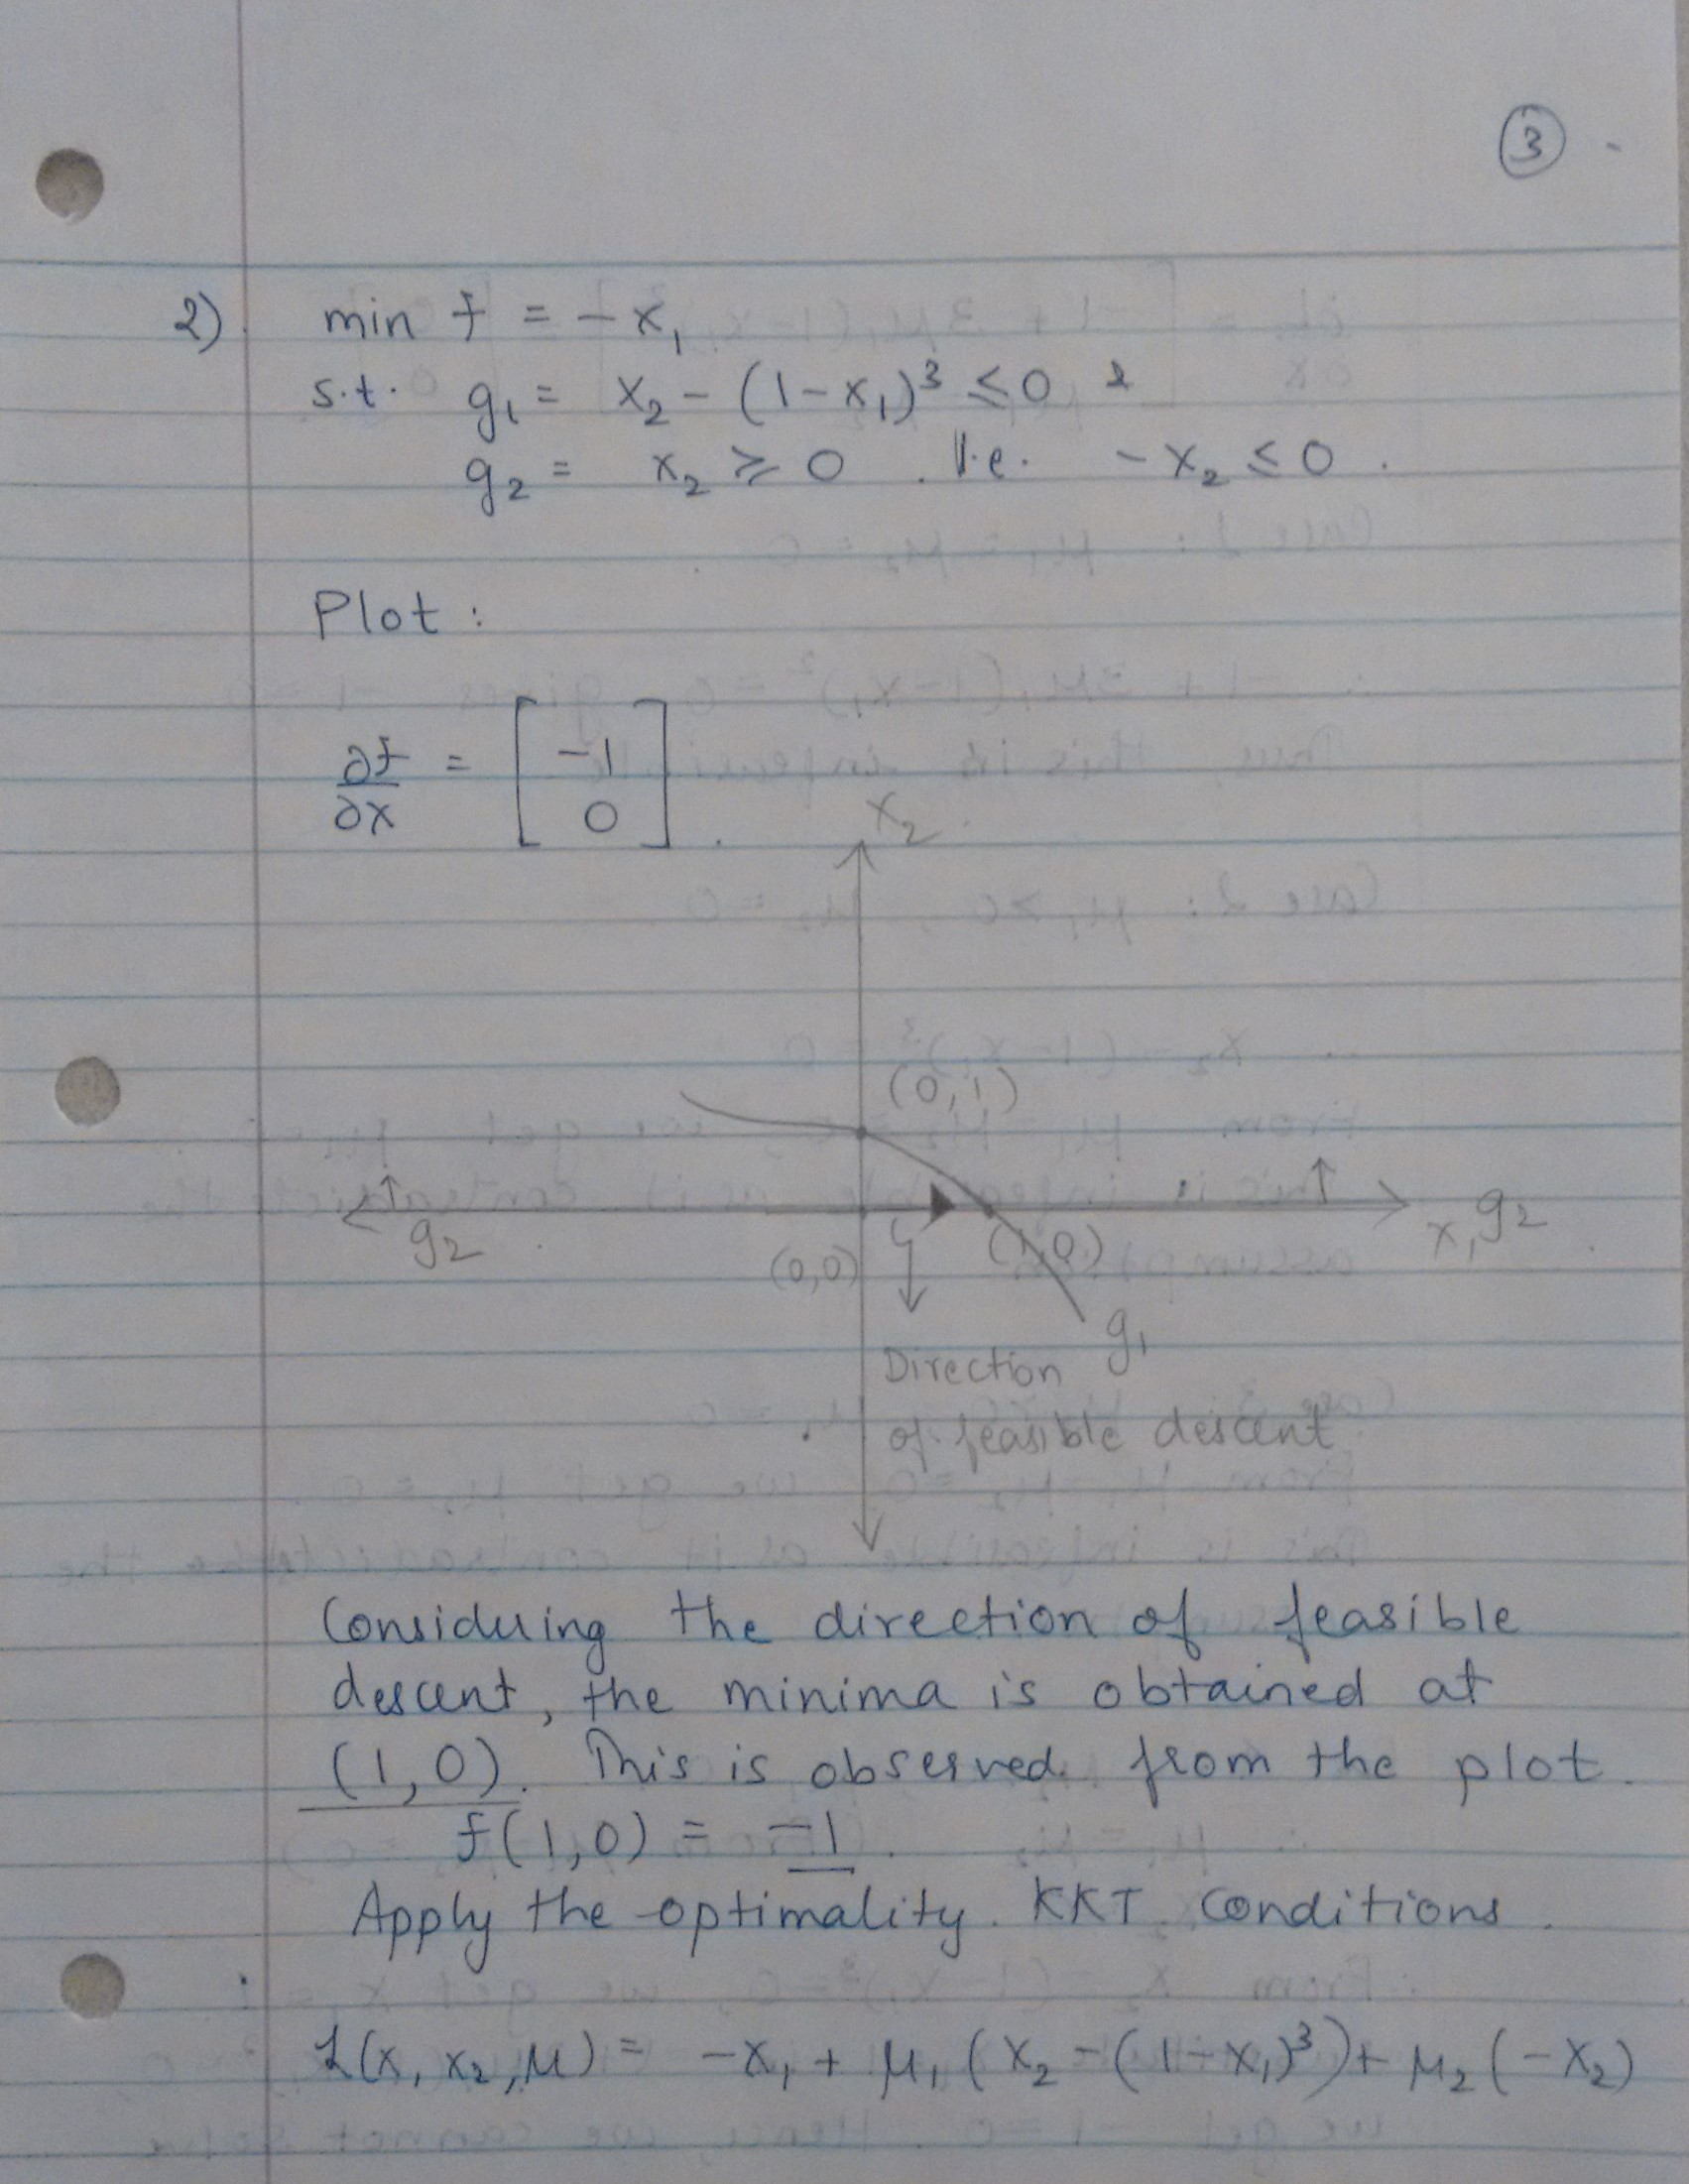 3
2) min f = -x₁
s.t. g₁ = x₂ - (1-x₁)³ ≤ 0 &
g₂ = x₂ ≥ 0 . i.e. -x₂ ≤ 0 .
Plot :
∂f/∂x = [-1 0] .
x₂
(0,1)
g₂
(0,0)
(1,0)
x₁ g₂
g₁
Direction
of feasible descent
Considering the direction of feasible
descent, the minima is obtained at
(1,0). This is observed from the plot.
f(1,0) = -1 .
Apply the optimality KKT conditions .
L(x, x₂, μ) = -x₁ + μ₁ (x₂ - (1-x₁)³) + μ₂ (-x₂)